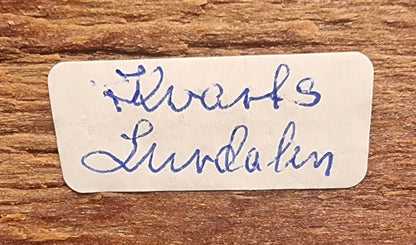 Kvarts
Lurdalen